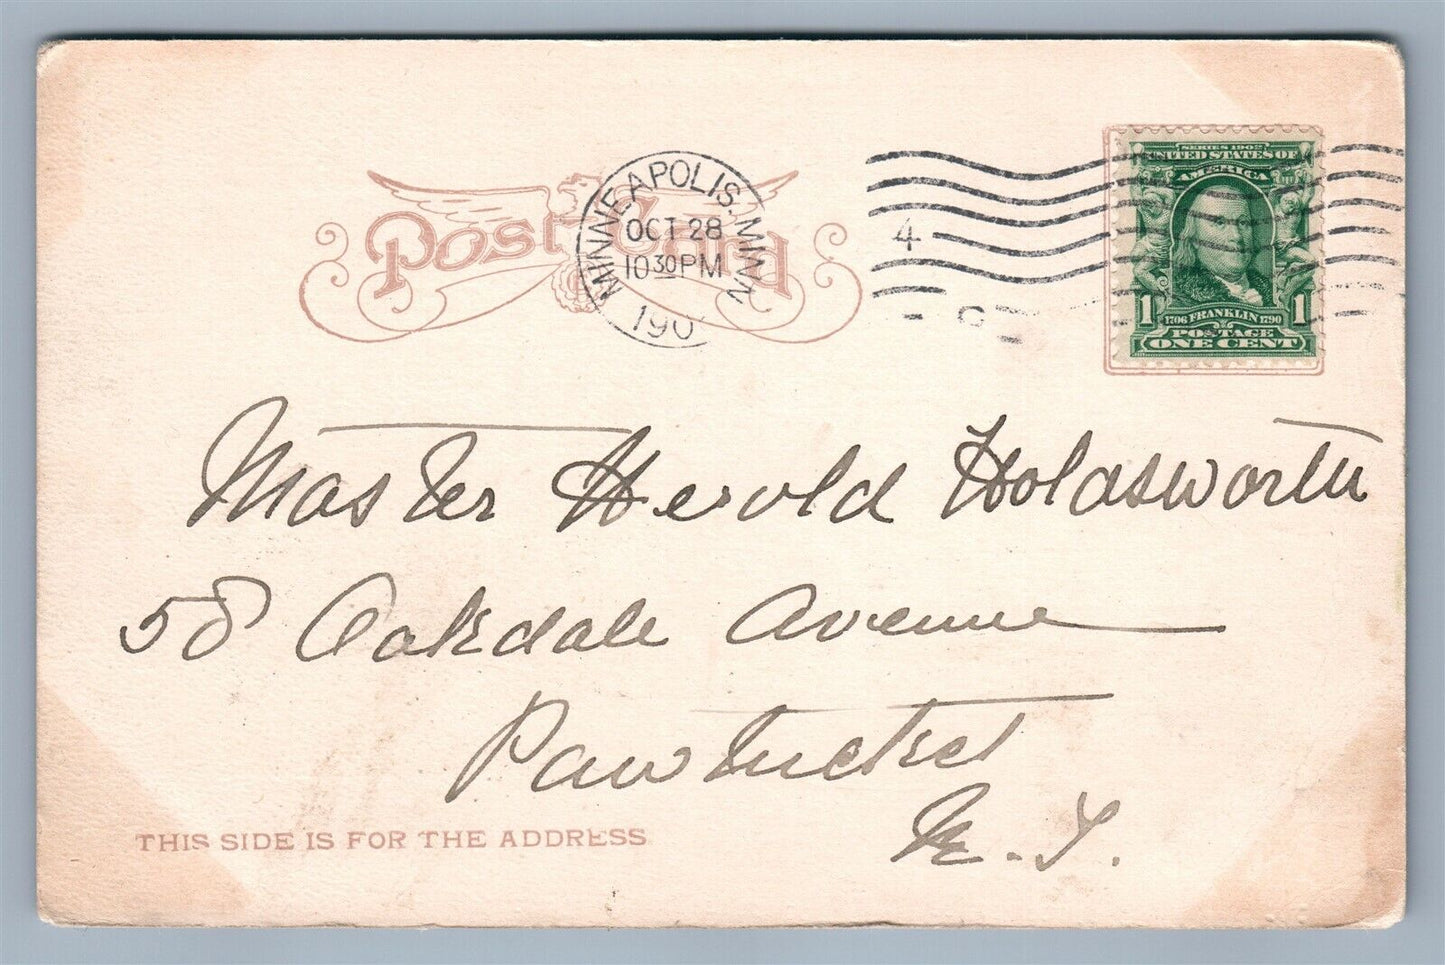 Post Card
MINNEAPOLIS. MINN
OCT 28
10 30 PM
190
4
SERIES 1902
UNITED STATES OF
AMERICA
1 1706 FRANKLIN 1790 1
POSTAGE
ONE CENT
Master Herold Holdsworth
58 Oakdale Avenue
Pawtucket
R. I.
THIS SIDE IS FOR THE ADDRESS